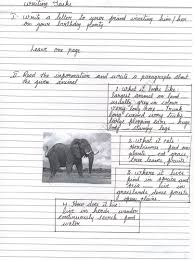 Writing Tasks
I. Write a letter to your friend inviting him / her
on your birthday party.
Leave one page
II. Read the information and write a paragraph about
the given animal
1. What it looks like:
largest animal on land
usually grey in colour
very long nose Trunk
long curved ivory tusks
large flapping ears huge
body stumpy legs
2. What it eats:
plants eat grass,
tree leaves, fruits
3. Where it lives
found in Africa and
live in
grasslands
4. How does it live:
live in herds wander
continuously search food
water